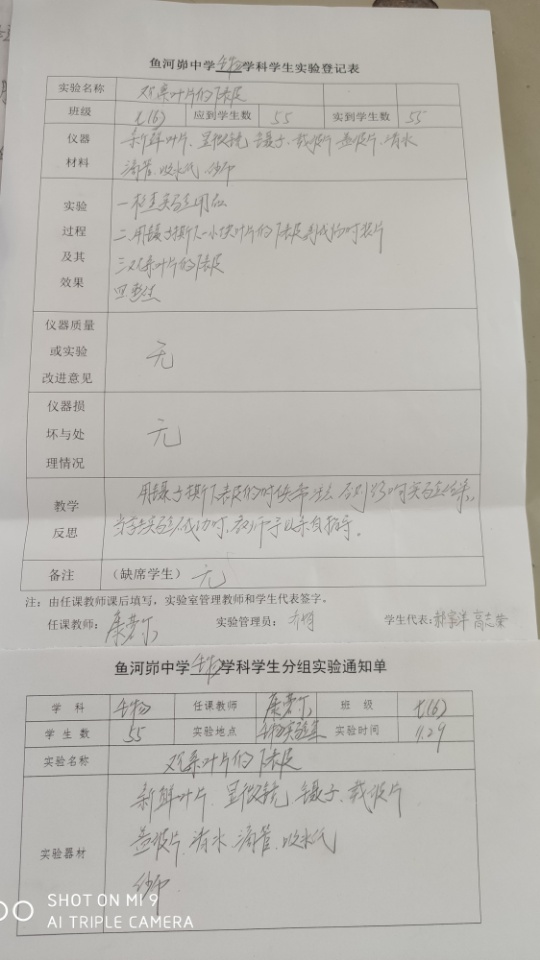 鱼河峁中学生物学科学生实验登记表
实验名称 观察叶片的下表皮
班级 七(6) 应到学生数 55 实到学生数 55
仪器材料 新鲜叶片、显微镜、镊子、载玻片、盖玻片、清水
滴管、吸水纸、纱布
实验过程及其效果 一、检查实验用品
二、用镊子撕下一小块叶片的下表皮制成临时装片
三、观察叶片的下表皮
四、整理
仪器质量或实验改进意见 无
仪器损坏与处理情况 无
教学反思 用镊子撕下表皮的时候
教师予以亲自指导。
备注 (缺席学生) 无
注：由任课教师课后填写，实验室管理教师和学生代表签字。
任课教师： 实验管理员： 学生代表：
鱼河峁中学生物学科学生分组实验通知单
学科 生物 任课教师 班级 七(6)
学生数 55 实验地点 生物实验室 实验时间 11.29
实验名称 观察叶片的下表皮
实验器材 新鲜叶片、显微镜、镊子、载玻片
盖玻片、清水、滴管、吸水纸
纱布
SHOT ON MI 9
AI TRIPLE CAMERA